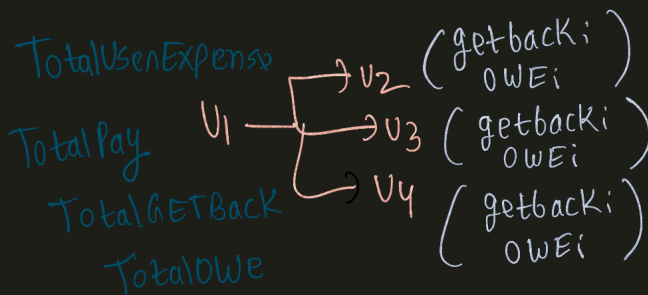 TotalUserExpense
TotalPay
TotalGETBack
TotalOWe
U1
U2
(getbacki
OWEi)
U3
(getbacki
OWEi)
U4
(getbacki
OWEi)